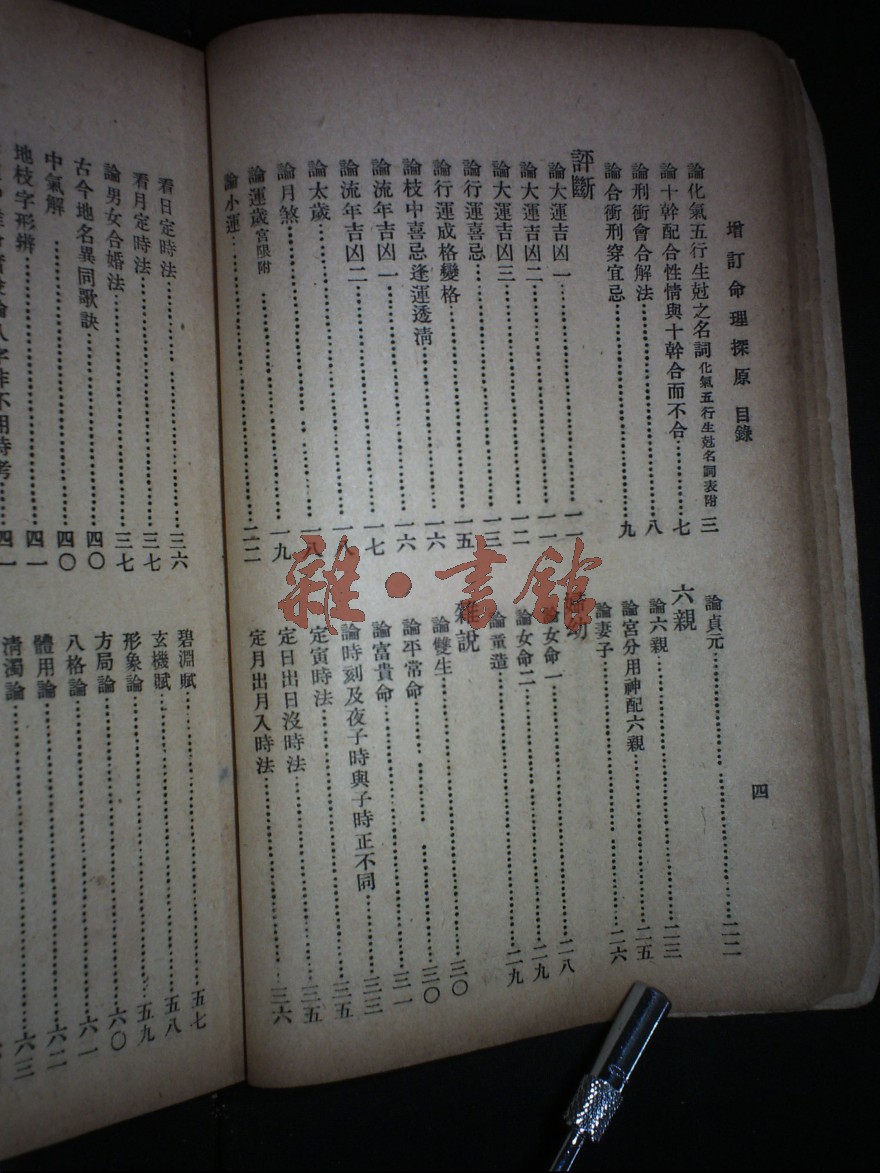 增訂命理探原 目錄
四
論化氣五行生尅之名詞 化氣五行生尅名詞表附 三
論十幹配合性情與十幹合而不合………七
論刑衝會合解法………八
論合衝刑穿宜忌………九
評斷
論大運吉凶一………一一
論大運吉凶二………一一
論大運吉凶三………一二
論行運喜忌………一三
論行運成格變格………一五
論枝中喜忌逢運透清………一六
論流年吉凶一………一六
論流年吉凶二………一七
論太歲………一八
論月煞………一八
論運歲 宮限附………一九
論小運………二二
論貞元………二二
六親
論六親………二三
論宮分用神配六親………二五
論妻子………二六
婦幼
論女命一………二八
論女命二………二九
論童造………二九
雜說
論雙生………三〇
論平常命………三〇
論富貴命………三一
論時刻及夜子時與子時正不同………三三
定寅時法………三五
定日出日沒時法………三五
定月出月入時法………三六
看日定時法………三六
看月定時法………三七
論男女合婚法………三七
古今地名異同歌訣………四〇
中氣解………四〇
地枝字形辨………四一
八字非不用時考………四一
碧淵賦………五七
玄機賦………五八
形象論………五九
方局論………六〇
八格論………六一
體用論………六二
清濁論………六三
雜·書館